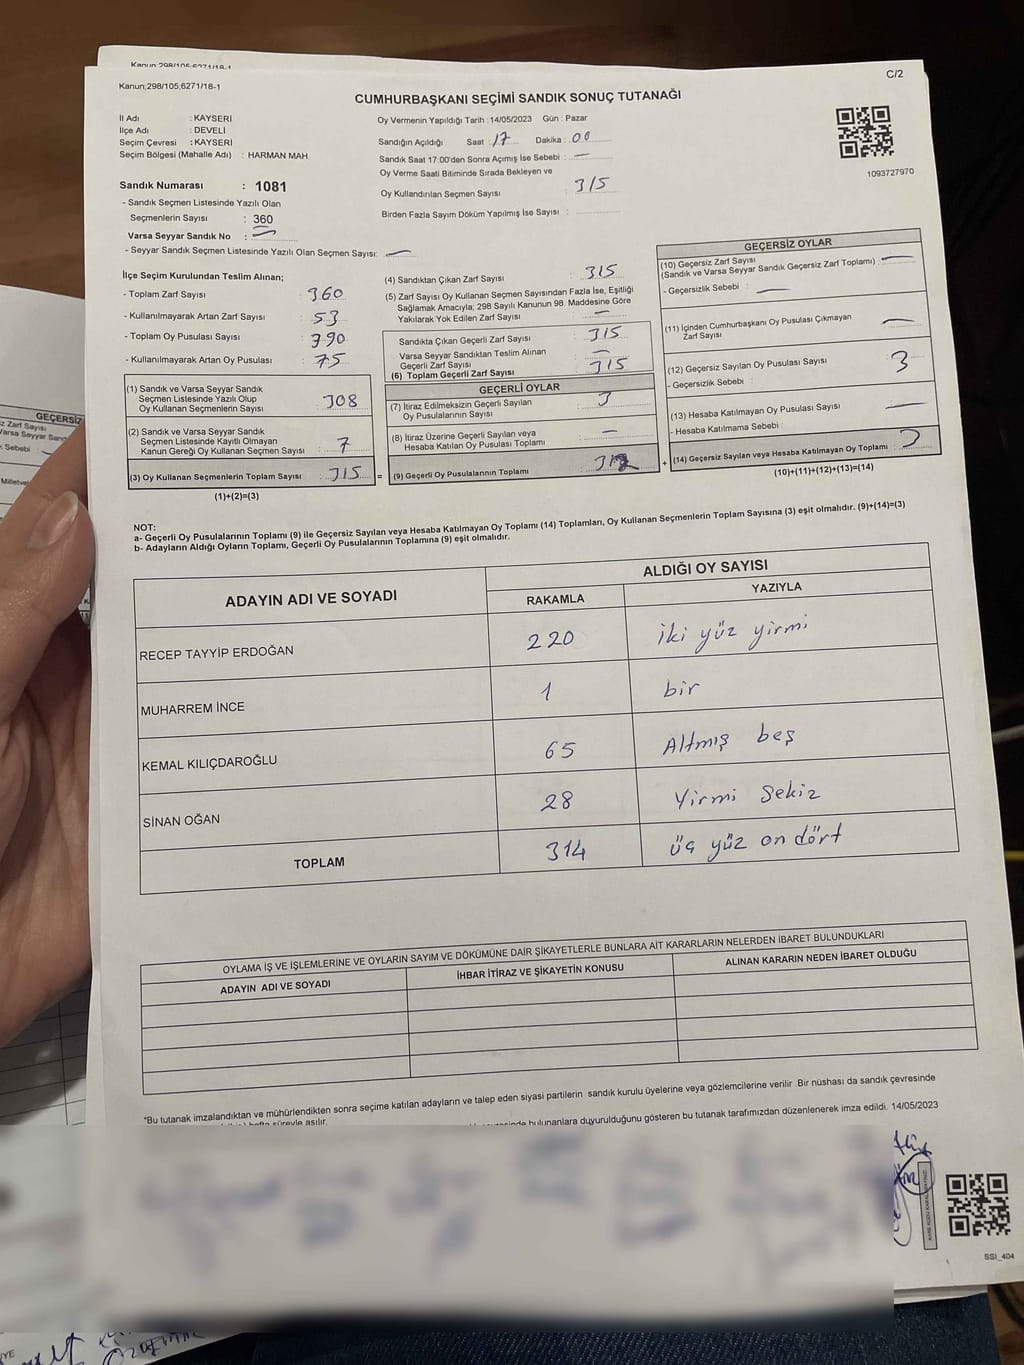 Kanun;298/105;6271/18-1
Kanun;298/105;6271/18-1
C/2
CUMHURBAŞKANI SEÇİMİ SANDIK SONUÇ TUTANAĞI
İl Adı : KAYSERİ
İlçe Adı : DEVELİ
Seçim Çevresi : KAYSERİ
Seçim Bölgesi (Mahalle Adı) : HARMAN MAH.
Sandık Numarası : 1081
- Sandık Seçmen Listesinde Yazılı Olan
Seçmenlerin Sayısı : 360
Varsa Seyyar Sandık No : —
- Seyyar Sandık Seçmen Listesinde Yazılı Olan Seçmen Sayısı: —
Oy Vermenin Yapıldığı Tarih : 14/05/2023 Gün : Pazar
Sandığın Açıldığı Saat : 17 Dakika : 00
Sandık Saat 17:00'den Sonra Açımış İse Sebebi : —
Oy Verme Saati Bitiminde Sırada Bekleyen ve
Oy Kullandırılan Seçmen Sayısı : 315
Birden Fazla Sayım Döküm Yapılmış İse Sayısı :
1093727970
İlçe Seçim Kurulundan Teslim Alınan;
- Toplam Zarf Sayısı : 360
- Kullanılmayarak Artan Zarf Sayısı : 53
- Toplam Oy Pusulası Sayısı : 390
- Kullanılmayarak Artan Oy Pusulası : 75
(1) Sandık ve Varsa Seyyar Sandık
Seçmen Listesinde Yazılı Olup
Oy Kullanan Seçmenlerin Sayısı : 308
(2) Sandık ve Varsa Seyyar Sandık
Seçmen Listesinde Kayıtlı Olmayan
Kanun Gereği Oy Kullanan Seçmen Sayısı : 7
(3) Oy Kullanan Seçmenlerin Toplam Sayısı : 315
(1)+(2)=(3)
(4) Sandıktan Çıkan Zarf Sayısı : 315
(5) Zarf Sayısı Oy Kullanan Seçmen Sayısından Fazla İse, Eşitliği
Sağlamak Amacıyla; 298 Sayılı Kanunun 98. Maddesine Göre
Yakılarak Yok Edilen Zarf Sayısı : —
Sandıkta Çıkan Geçerli Zarf Sayısı : 315
Varsa Seyyar Sandıktan Teslim Alınan
Geçerli Zarf Sayısı : —
(6) Toplam Geçerli Zarf Sayısı : 315
=
GEÇERLİ OYLAR
(7) İtiraz Edilmeksizin Geçerli Sayılan
Oy Pusulalarının Sayısı : 3
(8) İtiraz Üzerine Geçerli Sayılan veya
Hesaba Katılan Oy Pusulası Toplamı : —
(9) Geçerli Oy Pusulalarının Toplamı : 312
+
GEÇERSİZ OYLAR
(10) Geçersiz Zarf Sayısı
(Sandık ve Varsa Seyyar Sandık Geçersiz Zarf Toplamı) : —
- Geçersizlik Sebebi : —
(11) İçinden Cumhurbaşkanı Oy Pusulası Çıkmayan
Zarf Sayısı : —
(12) Geçersiz Sayılan Oy Pusulası Sayısı : 3
- Geçersizlik Sebebi :
(13) Hesaba Katılmayan Oy Pusulası Sayısı : —
- Hesaba Katılmama Sebebi :
(14) Geçersiz Sayılan veya Hesaba Katılmayan Oy Toplamı : 3
(10)+(11)+(12)+(13)=(14)
NOT:
a- Geçerli Oy Pusulalarının Toplamı (9) ile Geçersiz Sayılan veya Hesaba Katılmayan Oy Toplamı (14) Toplamları, Oy Kullanan Seçmenlerin Toplam Sayısına (3) eşit olmalıdır. (9)+(14)=(3)
b- Adayların Aldığı Oyların Toplamı, Geçerli Oy Pusulalarının Toplamına (9) eşit olmalıdır.
ADAYIN ADI VE SOYADI
ALDIĞI OY SAYISI
RAKAMLA YAZIYLA
RECEP TAYYİP ERDOĞAN 220 iki yüz yirmi
MUHARREM İNCE 1 bir
KEMAL KILIÇDAROĞLU 65 Altmış beş
SİNAN OĞAN 28 Yirmi Sekiz
TOPLAM 314 üç yüz on dört
OYLAMA İŞ VE İŞLEMLERİNE VE OYLARIN SAYIM VE DÖKÜMÜNE DAİR ŞİKAYETLERLE BUNLARA AİT KARARLARIN NELERDEN İBARET BULUNDUKLARI
ADAYIN ADI VE SOYADI İHBAR İTİRAZ VE ŞİKAYETİN KONUSU ALINAN KARARIN NEDEN İBARET OLDUĞU
*Bu tutanak imzalandıktan ve mühürlendikten sonra seçime katılan adayların ve talep eden siyasi partilerin sandık kurulu üyelerine veya gözlemcilerine verilir .Bir nüshası da sandık çevresinde
hafta süreyle asılır.
bulunanlara duyurulduğunu gösteren bu tutanak tarafımızdan düzenlenerek imza edildi. 14/05/2023
SSI_404
GEÇERSİZ
Zarf Sayısı
Sebebi